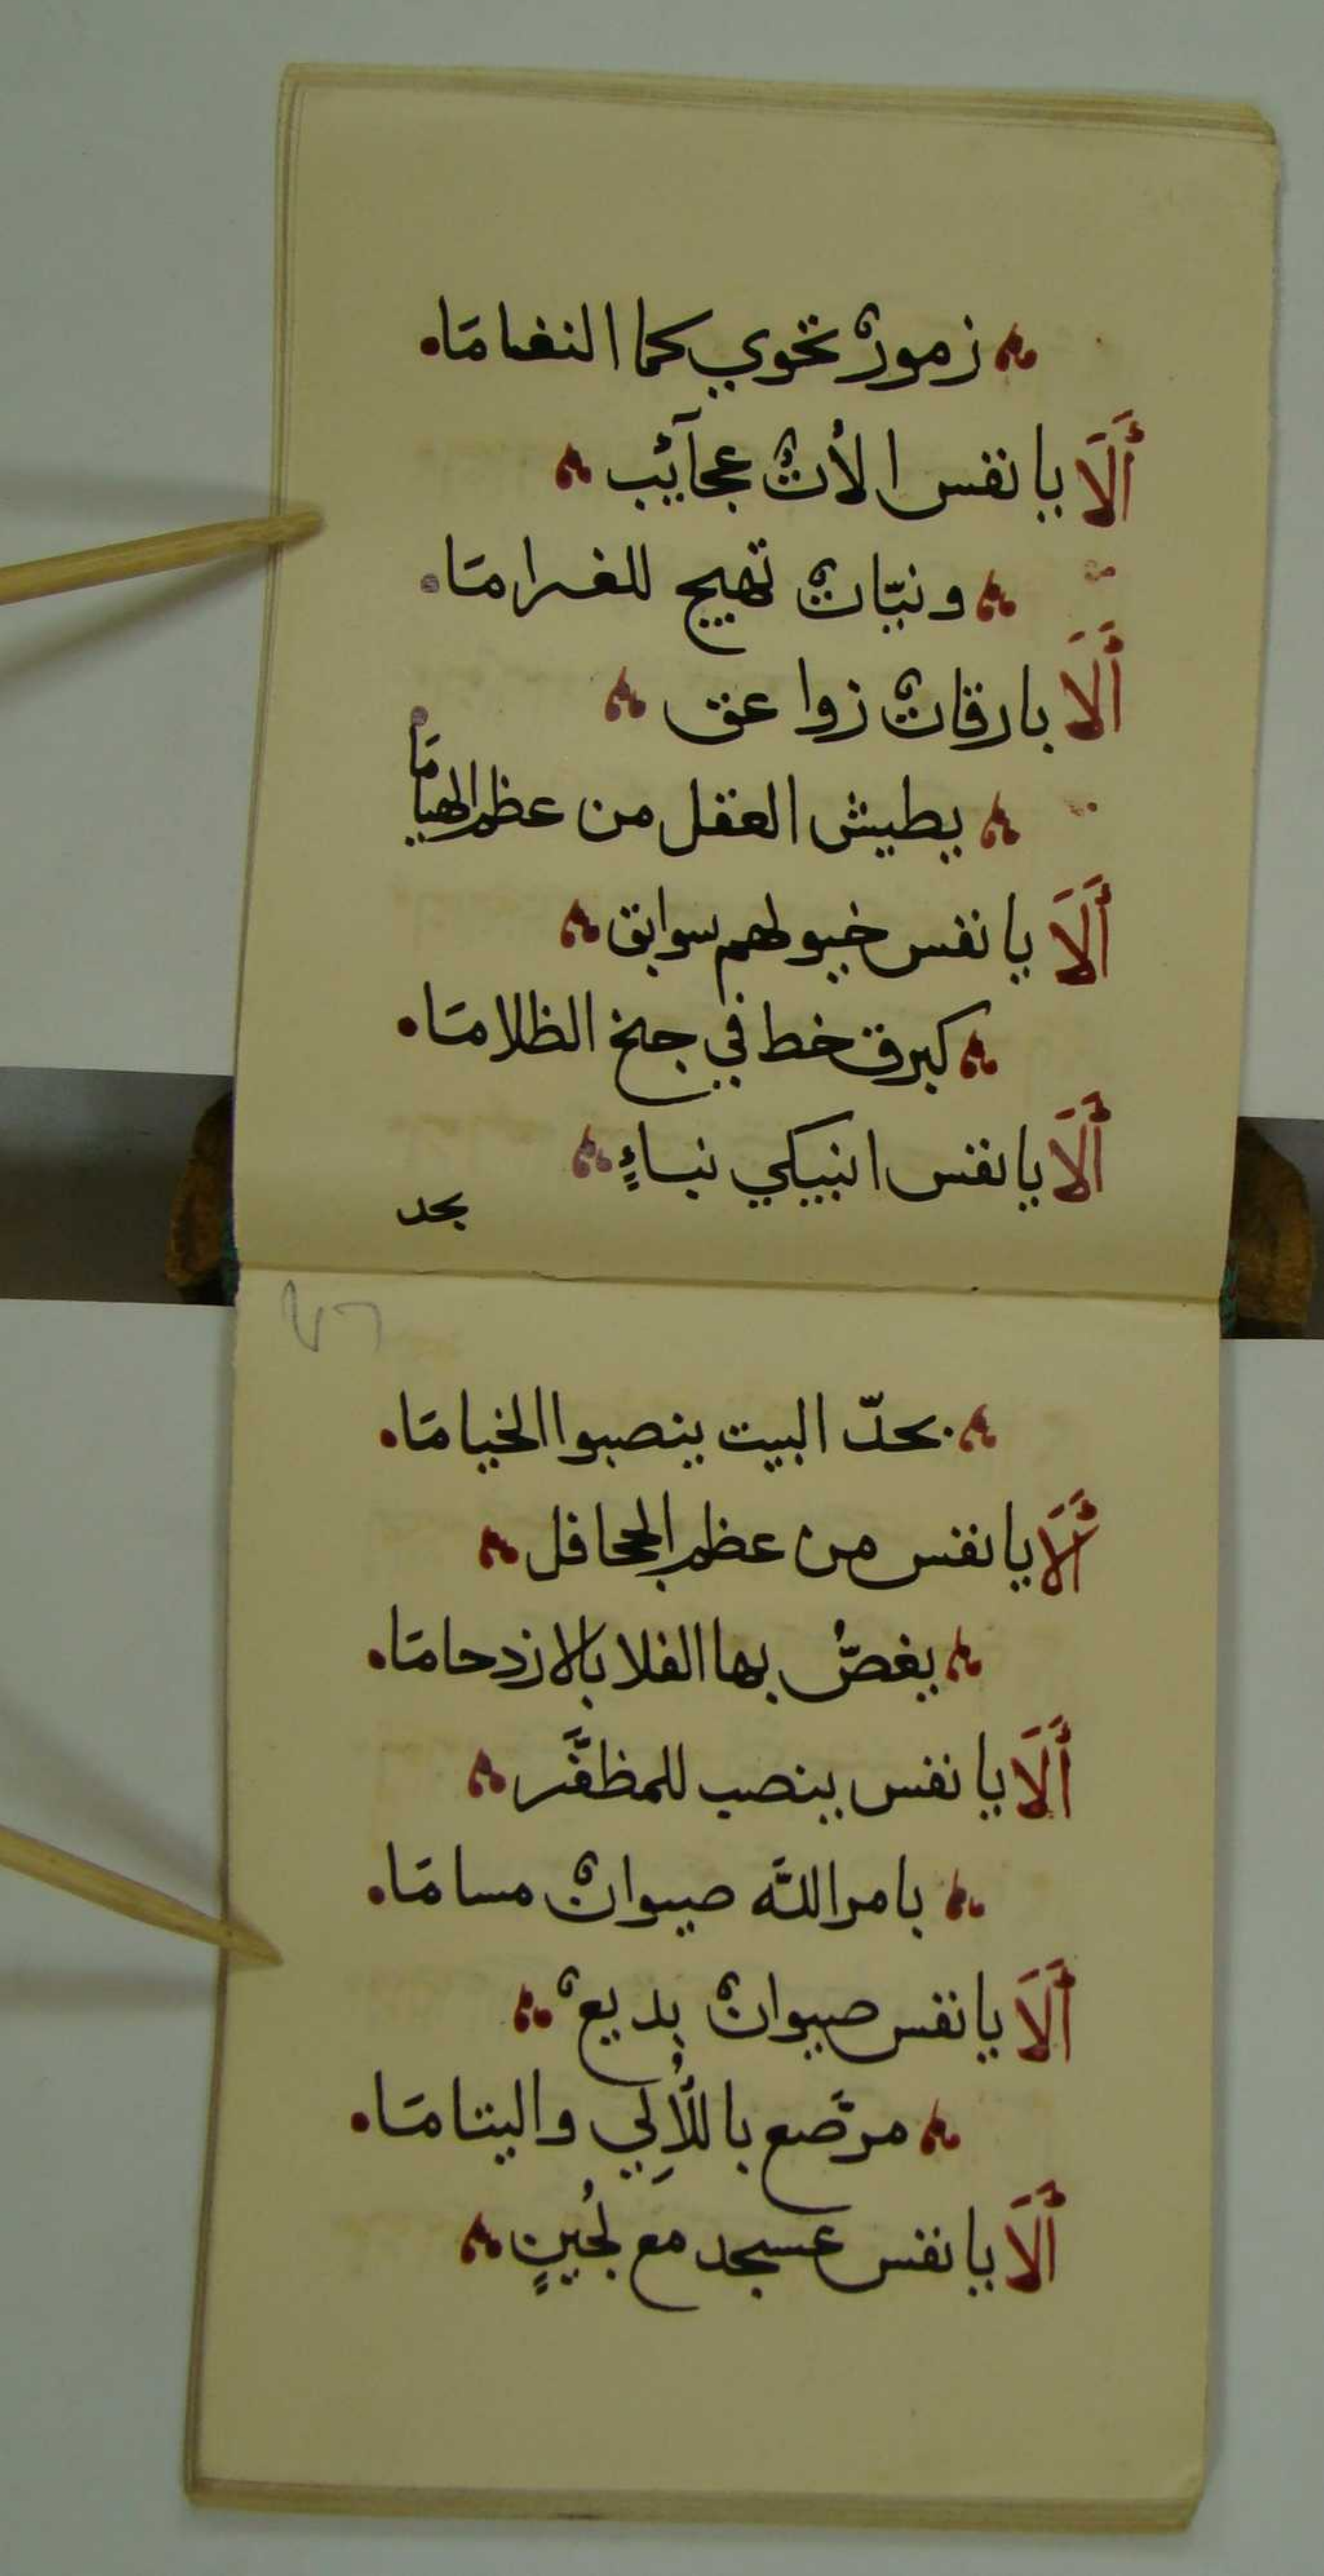 زمورٌ تحوي كما النغامَا.
أَلَا يا نفس الأتٌ عجآئب
ونيّاتٌ تهيج للغرامَا.
أَلَا بارقاتٌ زواعق
يطيش العقل من عظم الهيامَا
أَلَا يا نفس خيولهم سوابق
كبرق خط في جنح الظلامَا.
أَلَا يا نفس انبيكي نباءٍ
بحد
بحدّ البيت ينصبوا الخيامَا.
أَلَا يا نفس من عظم الجحافل
يغصُّ بها الفلا بالازدحامَا.
أَلَا يا نفس ينصب للمظفَّر
بامر اللّه صيوانٌ مسامَا.
أَلَا يا نفس صيوانٌ بديعٌ
مرّصع باللُألِي واليتامَا.
أَلَا يا نفس عسجد مع لجُينٍ